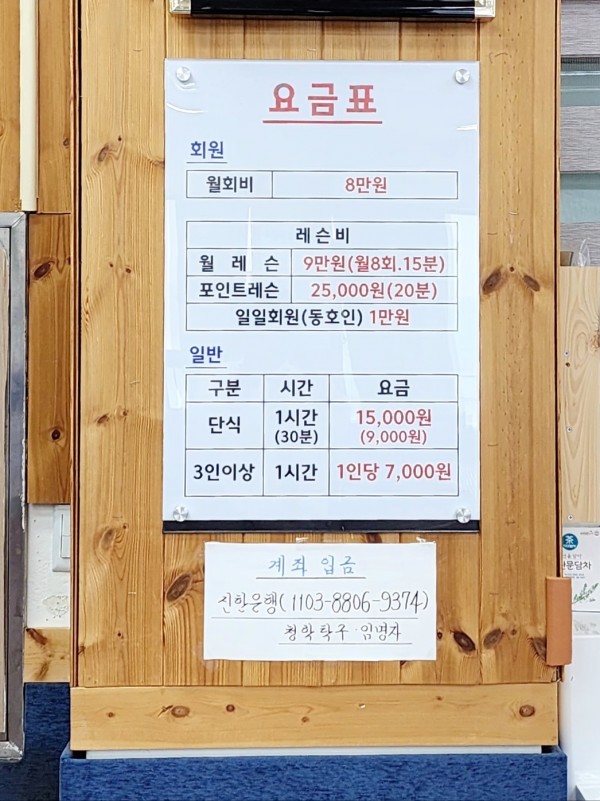 요금표
회원
월회비 8만원
레슨비
월 레 슨 9만원(월8회.15분)
포인트레슨 25,000원(20분)
일일회원(동호인) 1만원
일반
구분 시간 요금
단식 1시간 15,000원
(30분) (9,000원)
3인이상 1시간 1인당 7,000원
계좌 입금
신한은행(1103-8806-9374)
청학탁구·임명자
문담차